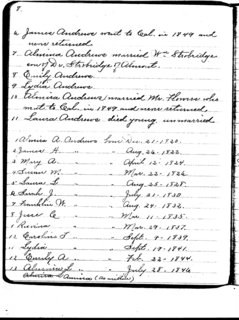 8.
6 James Andrews went to Cal. in 1849 and
never returned
7. Almina Andrews married Wm Strobridge
son of Dr. Strobridge of Almont.
8 Emily Andrews
9 Lydia Andrews
10 Almira Andrews married Mr. who
went to Cal. in 1849 and never returned.
11 Laura Andrews died young unmarried
1 A. Andrews born Dec. 21-1820.
2 James H. " " Aug. 26-1822.
3 Mary A. " " April 12-1824.
4 M. " " Mar. 22-1826
5 Laura L. " " Aug. 25-1828.
6 Sarah J. " " July 21-1830
7 Franklin W. " " Aug. 24-1832.
8 Jesse C. " " Mar. 11-1835.
9 " " Mar. 29-1837.
10 Caroline T. " " Sept. 9-1839.
11 Lydia " " Sept. 19-1841.
12 Emily A. " " Feb. 22-1844.
13 L. " " July 28-1846